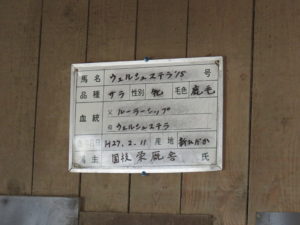 馬名 ウェルシュステラ'15 号
品種 サラ 性別 牝 毛色 鹿毛
血統 父 ルーラーシップ
母 ウェルシュステラ
生年月日 H27.2.11 産地 新ひだか
馬主 国枝栄厩舎 氏